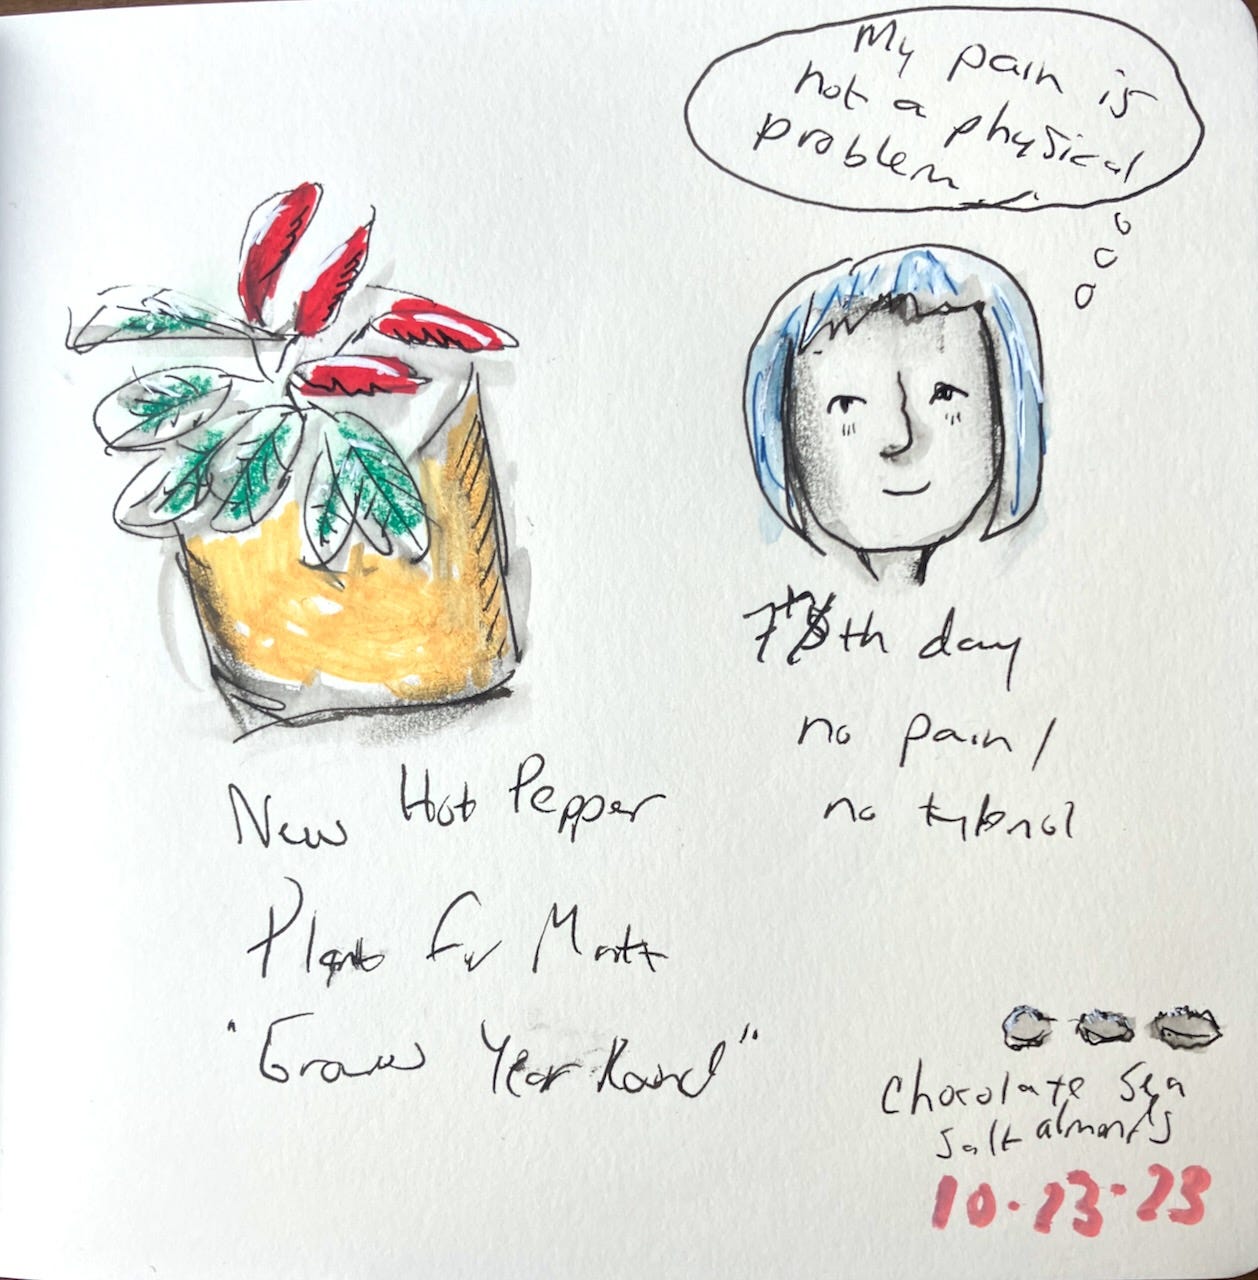 My pain is
not a physical
problem
7th day
no pain /
no tylenol
New Hot Pepper
Plant for Matt
"Grow Year Round"
Chocolate Sea
Salt almonds
10.23.23